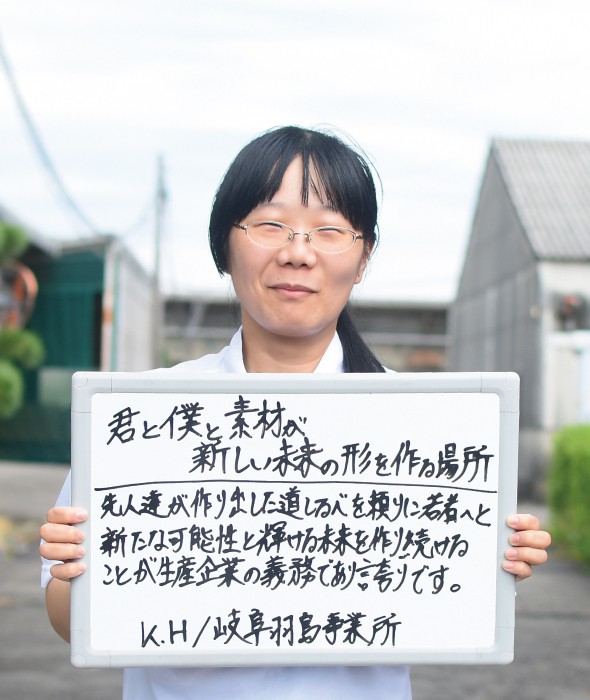 君と僕と素材が
新しい未来の形を作る場所
先人達が作り出した道しるべを頼りに若者へと
新たな可能性と輝ける未来を作り続ける
ことが生産企業の義務であり誇りです。
K.H/岐阜羽島事業所